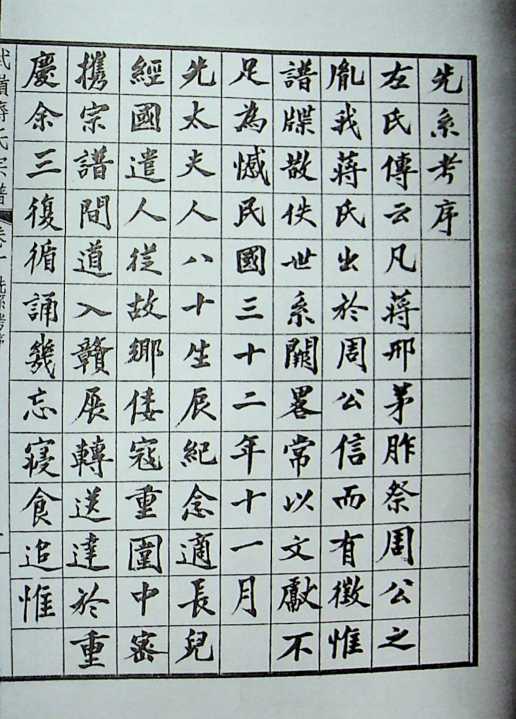 先系考序
左氏傳云凡蔣邢茅胙祭周公之
胤我蔣氏出於周公信而有徵惟
譜牒散佚世系闕畧常以文獻不
足為憾民國三十二年十一月
先太夫人八十生辰紀念適長兒
經國遣人從故鄉倭寇重圍中密
攜宗譜間道入贛展轉送達於重
慶余三復循誦幾忘寢食追惟
武嶺蔣氏宗譜 卷一 先系考序